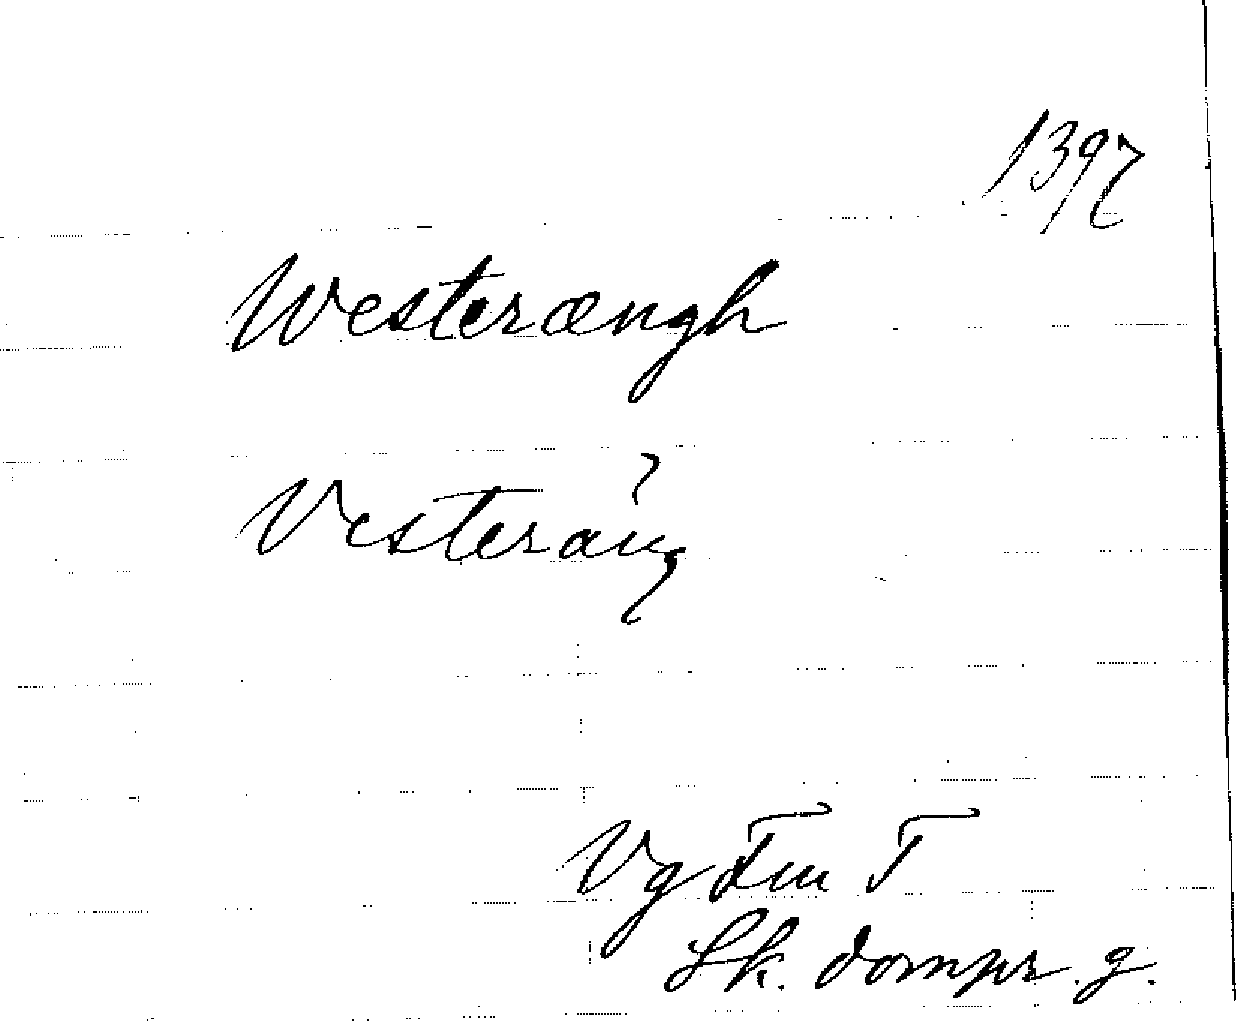 1397
Westerængh
?
Vesteräng
Vg Fm T
Sk. dompr. g.